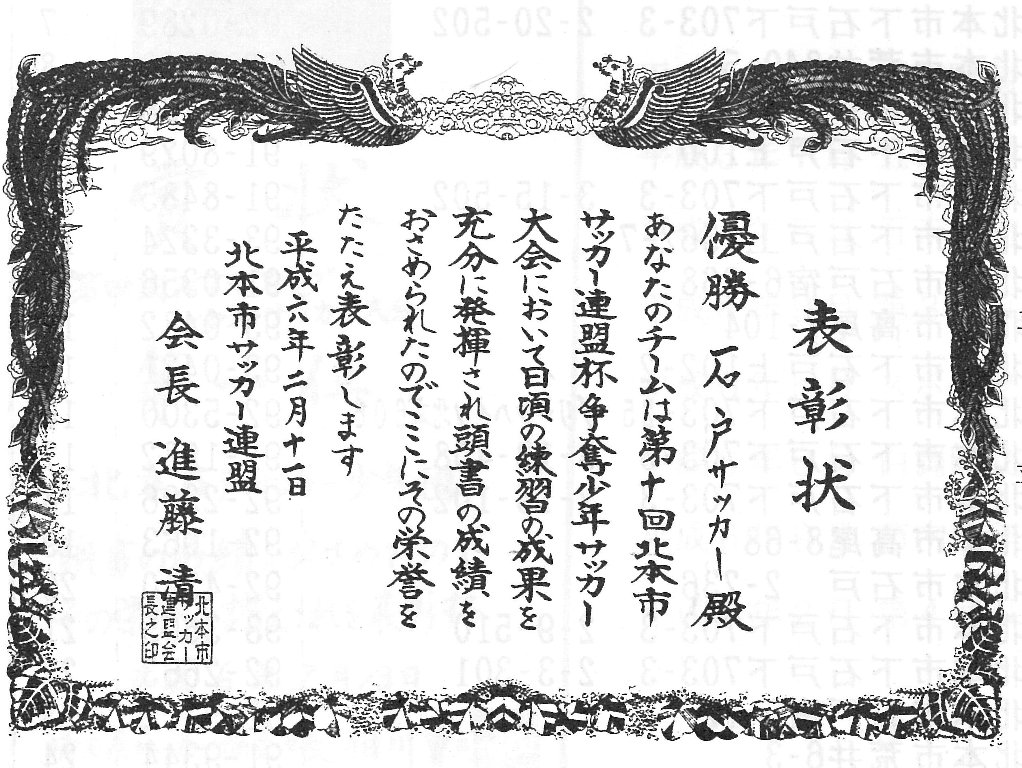 表彰状
優勝 石戸サッカー殿
あなたのチームは第十回北本市
サッカー連盟杯争奪少年サッカー
大会において日頃の練習の成果を
充分に発揮され頭書の成績を
おさめられたのでここにその栄誉を
たたえ表彰します
平成六年二月十一日
北本市サッカー連盟
会長 進藤 清
北本市
サッカー
連盟会
長之印